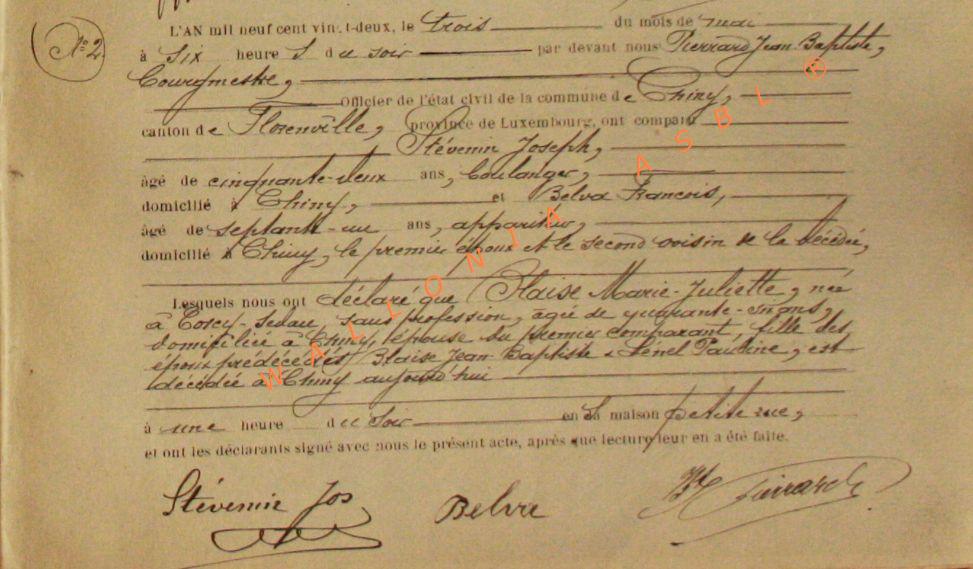 N° 2
L'AN mil neuf cent vingt-deux, le trois du mois de mai
à six heures du soir par devant nous Pierrard Jean-Baptiste,
Bourgmestre,
Officier de l'état civil de la commune de Chiny,
canton de Florenville, province de Luxembourg, ont comparu
Stévenin Joseph,
âgé de cinquante-deux ans, boulanger,
domicilié à Chiny, et Belva François,
âgé de septante-un ans, appariteur,
domicilié à Chiny, le premier époux et le second voisin de la décédée,
Lesquels nous ont déclaré que Blaise Marie-Juliette, née
à Torcy-Sedan, sans profession, âgée de quarante- ans,
domiciliée à Chiny, épouse du premier comparant, fille des
époux prédécédés Blaise Jean-Baptiste & Pauline, est
décédée à Chiny aujourd'hui
à une heure du soir en sa maison petite rue,
et ont les déclarants signé avec nous le présent acte, après que lecture leur en a été faite.
Stévenin Jos Belva Pierrard
WALLONIA ASBL ®